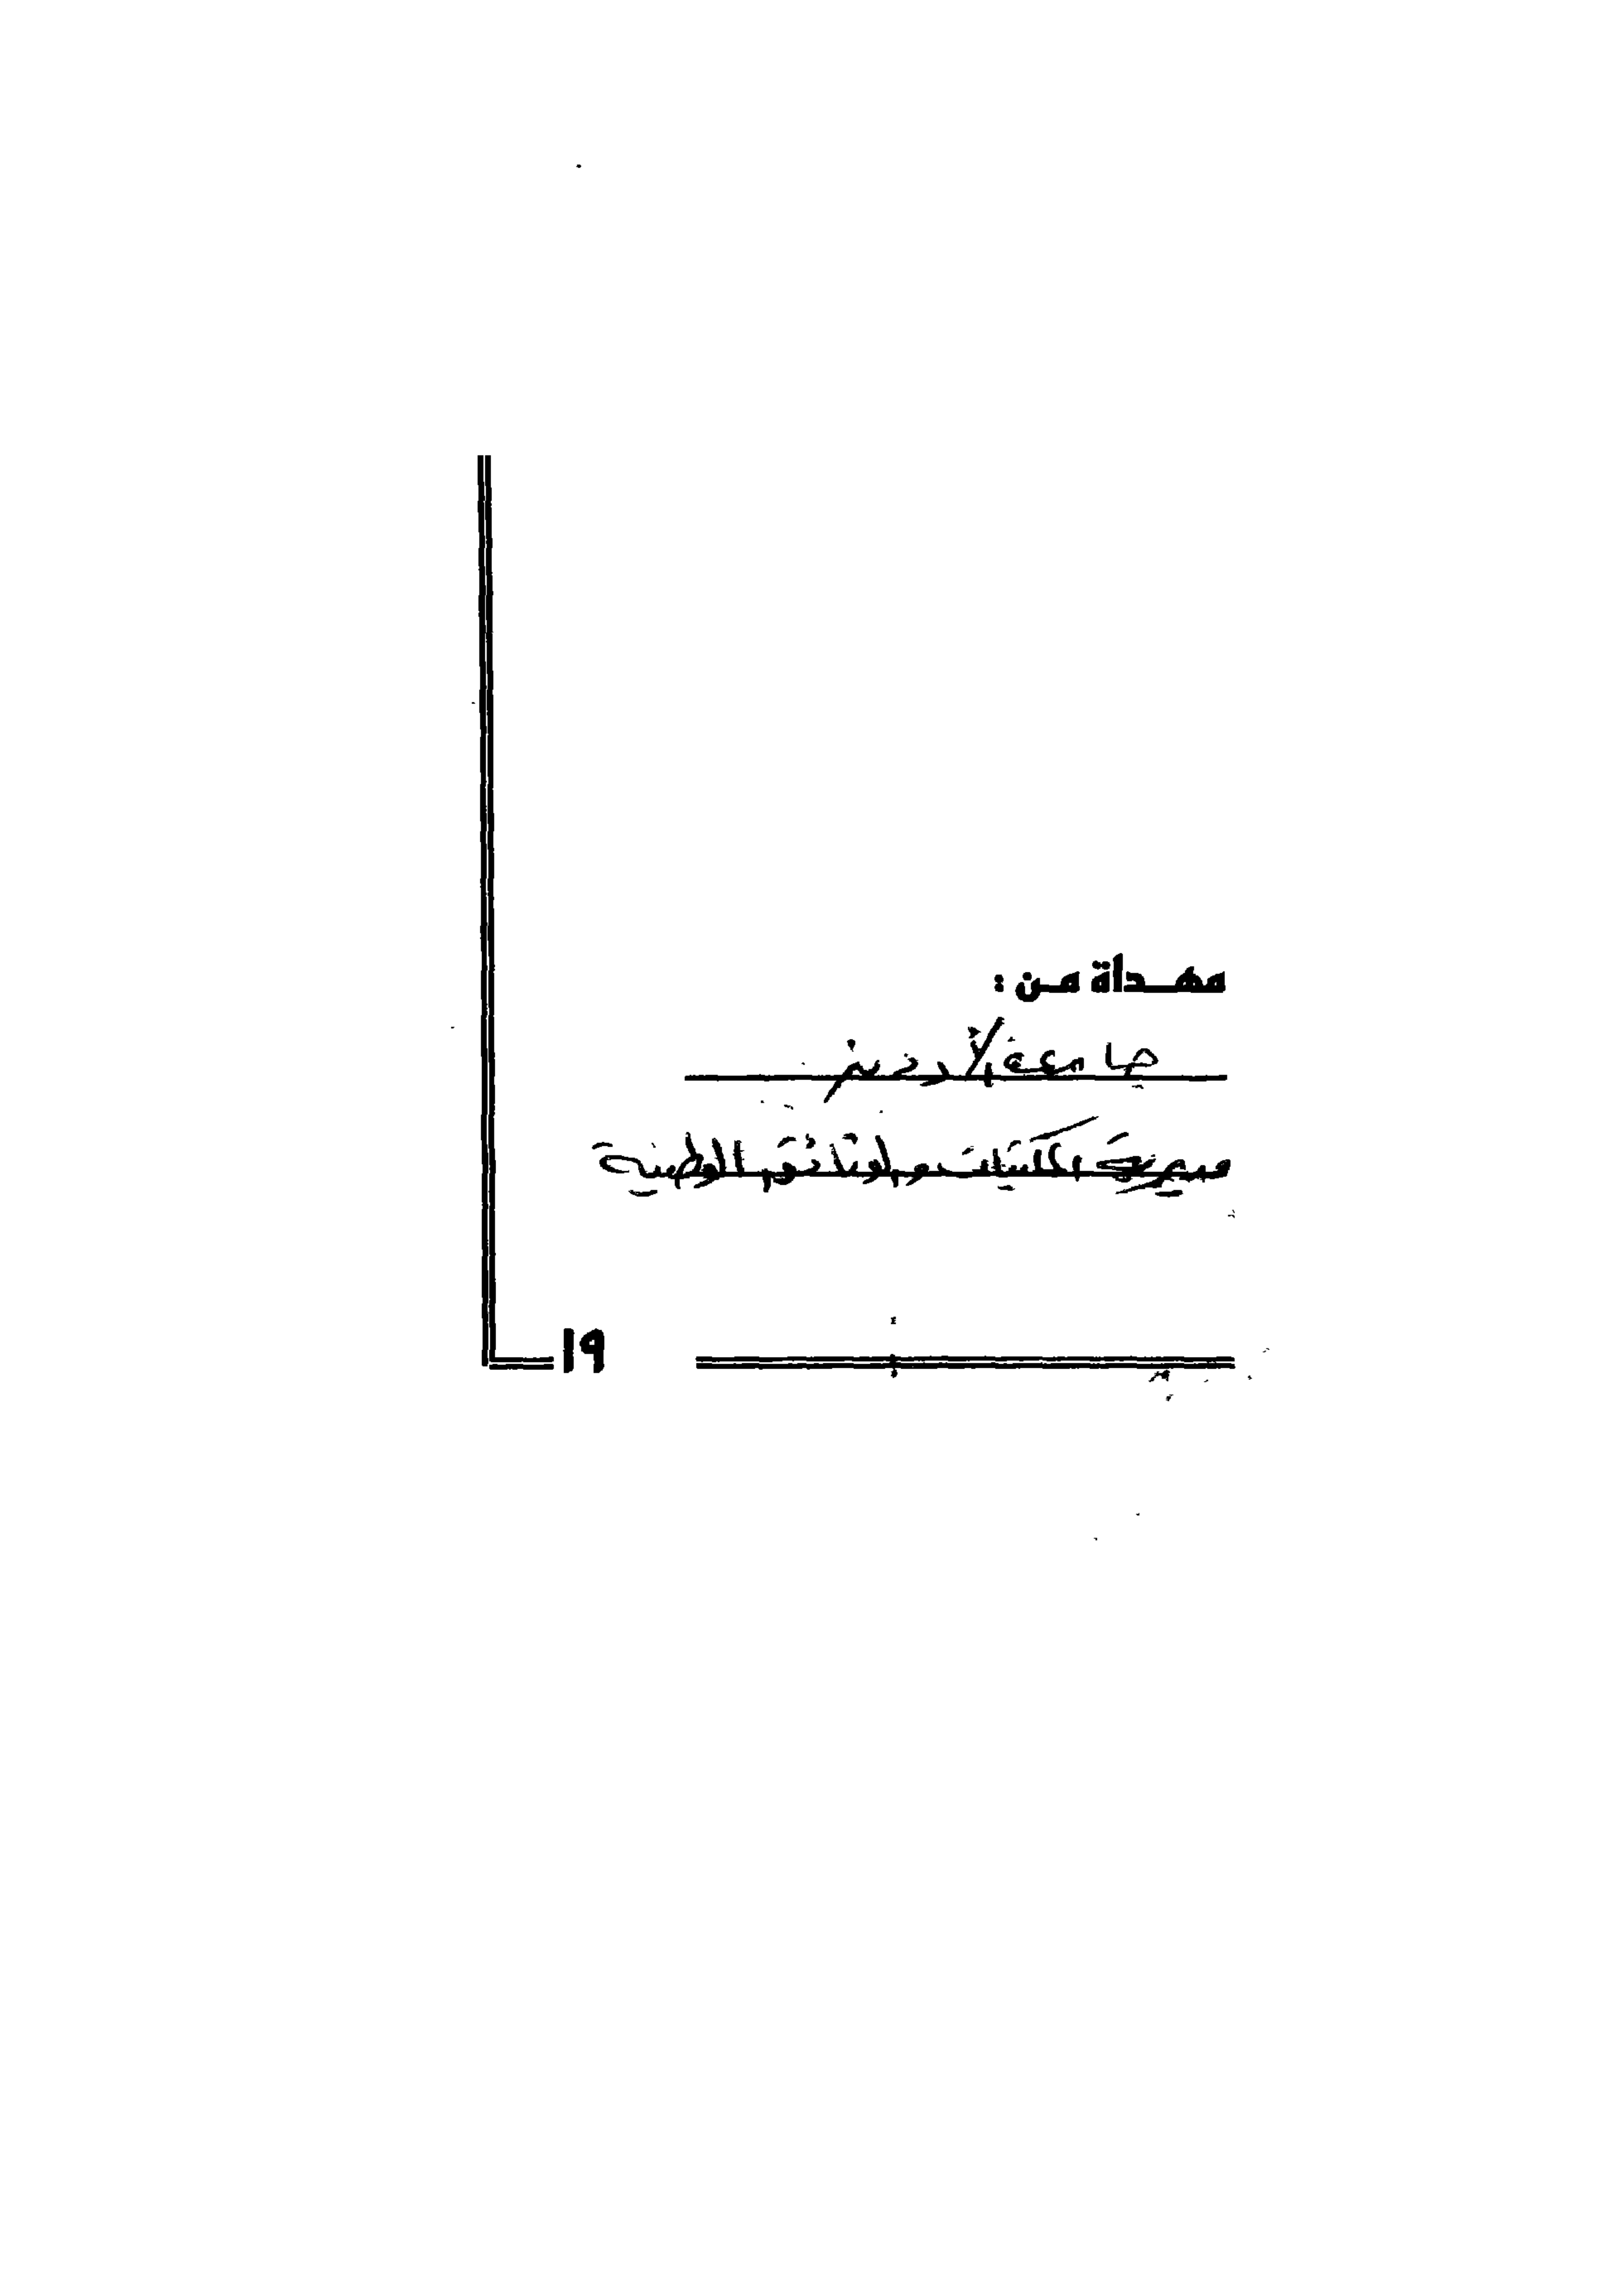 مهداة من :
جامعة الأردنية
مديرية المكتبات والوثائق الوطنية
١٩